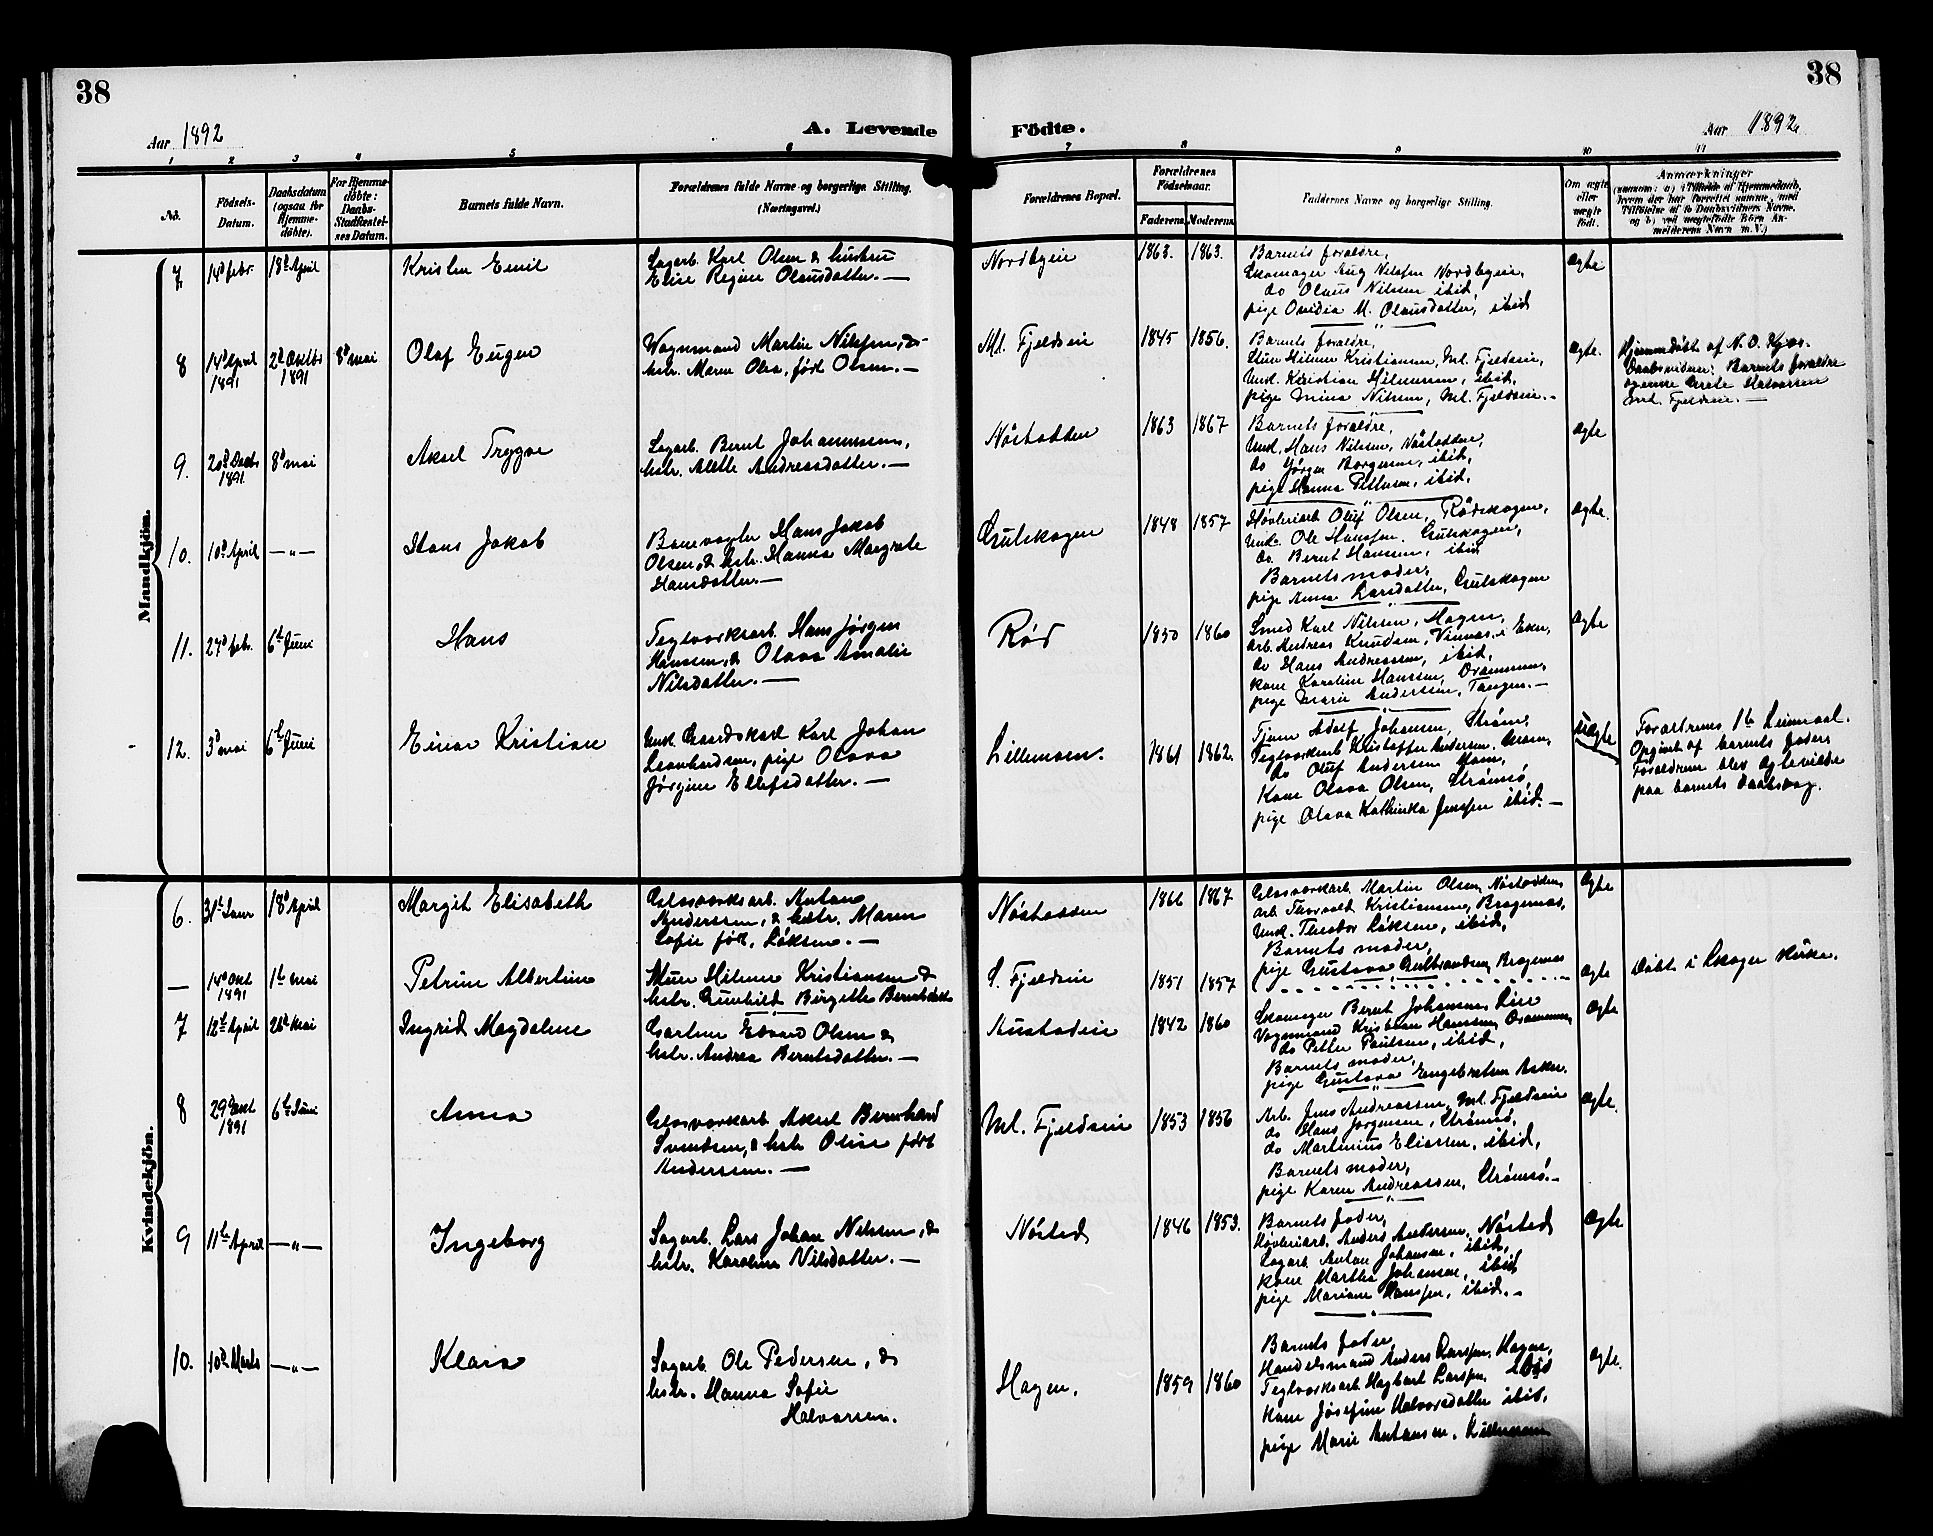 38
38
Aar 1892
A. Levende
Födte.
Aar 1892
1 2 3 4 5 6 7 8 9 10 11
No.
Födsels-
Datum.
Daabsdatum
(ogsaa for
Hjemme-
döbte).
For Hjemme-
döbte:
Daabs-
Stadfæstel-
ses Datum.
Barnets fulde Navn.
Forældrenes fulde Navne og borgerlige Stilling.
(Næringsvei.)
Forældrenes Bopæl.
Forældrenes
Födselsaar.
Faderens.
Moderens.
Faddernes Navne og borgerlige Stilling.
Om ægte
eller
uægte
födt.
Anmærkninger
Mandkjön.
7 14d febr. 18d April
Emil
Sagarb. Karl Olsen & hustru
Elise Regine Olausdatter. —
Nordbyeie
1863. 1863.
Barnets forældre,
Skomager Aug Nilssen Nordbyeie,
do Olaus Nilsen ibid,
pige Ovidia M. Olausdatter, ibid
Ægte
8 14d April
1891
2d Octbr
1891
8d mai
Olaf Eugen
Vognmand Martin Nilssen, &
hstr. Maren Olea, født Olsen. —
Ml. Fjeldseie
1845 1856.
Barnets forældre,
Hilmer Kristiansen, Ml. Fjeldseie,
Unk. Kristian Hilmersen, ibid,
pige Mina Nilsen, Ml. Fjeldseie. —
Ægte.
Hjemmedøbt af N. O. Kjos.
Daabsvidner: Barnets forældre
Fjeldseie. —
9. 20d Decbr
1891
8d mai
Aksel Trygve
Sagarb. Bernt Johannesen,
hstr. Alette Andreasdatter. —
Nøstodden
1863 1867
Barnets forældre,
Unk. Hans Nilsen, Nøstodden,
do Jørgen Borgersen, ibid,
pige Hanna Pettersen, ibid,
Ægte
10. 10d April —"—
Hans Jakob
Banevogter Hans Jakob
Olsen, & hstr. Hanna Margrete
Hansdatter. —
Gulskogen
1848 1857
Høvleriarb Oluf Olsen, Rødskogen,
Unk. Ole Hanssen. Gulskogen,
do. Bernt Hansen, ibid
Barnets moder,
pige Anna Larsdatter, Gulskogen
Ægte.
11. 27d febr. 6te Juni
Hans
Teglverksarb. Hans Jørgen
Hanssen, & Olava Amalie
Nilsdatter. —
Rød
1850 1860
Smed Karl Nilsen, Hagen,
Arb. Andreas Knudsen, Vinnes, i Eker,
do Hans Andreassen, ibid,
kone Karoline Hanssen, Drammen,
pige Marie Andersen, Tangen. —
Ægte
12. 3d mai 6te Juni
Einar Kristian
Unk. Gaardskarl Karl Johan
Leonhardsen, pige Olava
Jørgine Ellefsdatter. —
Lillemoen.
1861 1862.
Adolf Johansen, Strøm,
Teglverksarb Kristoffer Andersen,
do Oluf Andersen
Kone Olava Olsen, Strømsø,
pige Olava Kathinka Jenssen ibid. —
Uægte
Forældrenes 1te Leiermaal.
Opgivet af barnets fader.
Forældrene blev Egteviede
paa barnets daabsdag.
Kvindekjön.
6. 31te Janr 18d April
Margit Elisabeth
Glasverksarb. Anton
Anderssen, & hstr. Maren
Sofie født, Løksen. —
Nøstodden
1866 1867
Glasverkarb Martin Olsen, Nøstodden,
arb Thorvald Kristiansen, Bragernæs,
Unk. Theodor Løksen, ibid,
Barnets moder,
pige Gustava Gulbrandsen, Bragernæs
Ægte
— 14d Oct
1891
1te mai
Petrine Albertine
Hilmer Kristiansen &
hstr. Gunhild Birgitte Berntsdatter
S. Fjeldseie
1851 1857
Ægte
Døbt i Skoger Kirke.
7 12te April 26d Mai
Ingrid Magdalene
Gartner Edvard Olsen &
hstr. Andrea Berntsdatter. —
Austadeie
1842 1860
Skomager Bernt Johansen, Lier
Vognmand Kristian Hansen, Drammen,
do Petter Paulsen, ibid,
Barnets moder,
pige Gustava Engebretsen Asker.
Ægte
8 29d Oct
1891
6te Juni
Anna
Glasverksarb Aksel Bernhard
Svendsen, & hstr Oline født
Anderssen. —
Ml. Fjeldseie
1853 1856
Arb. Jens Andreassen, Ml. Fjeldseie
do Hans Jørgensen, Strømsø,
do Martinius Eliassen, ibid,
Barnets moder,
pige Karen Andreassen, Strømsø. —
Ægte.
9 11te April —"—
Ingeborg
Sagarb. Lars Johan Nilssen, &
hstr. Karoline Nilsdatter. —
Nøsted
1846 1853.
Barnets fader,
Høvleriarb. Anders Andersen, Nøsted
Sagarb Anton Johansen, ibid,
kone Marthe Johansen, ibid
pige Mariane Hanssen, ibid. —
Ægte
10. 10de Marts —"—
Klara
Sagarb. Ole Pedersen, &
hstr. Hanna Sofie
Halvorsen.
Hagen.
1859 1860
Barnets fader,
Handelsmand Anders Larssen, Hagen,
Teglverksarb Hagbart Larssen, ibid
Kone Josefine Halvorsdatter ibid,
pige Marie Antonsen, Lillemoen
Ægte.